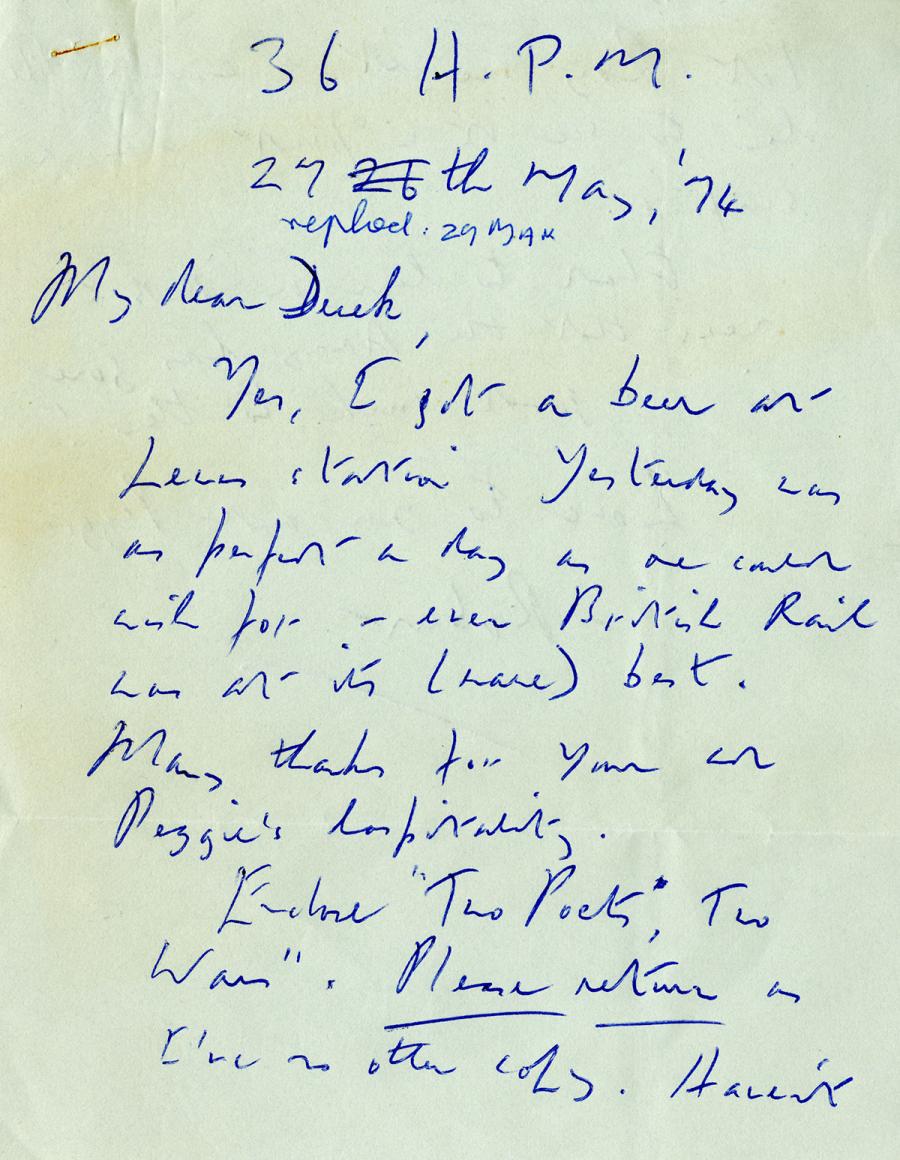 36 H.P.M.
27 26th May, '74
replied: 29 MAY
My dear Derek,
Yes, I got a beer at
Lewes station. Yesterday was
as perfect a day as one could
wish for – even British Rail
was at its (rare) best.
Many thanks for your and
Peggie's hospitality.
Enclose "Two Poets, Two
Wars". Please return as
I've no other copy. Haven't